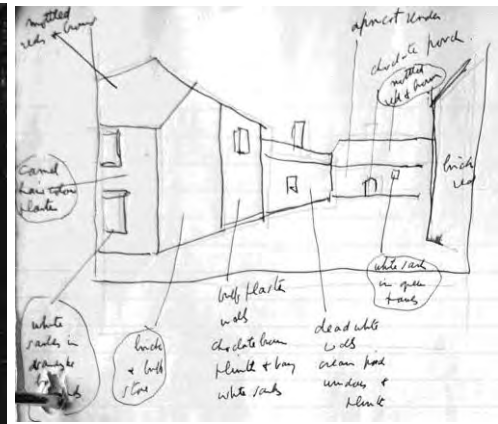 mottled
reds & brown
apricot render
chocolate porch.
mottled
red & brown
brick
red
camel
plaster
white sash
in
white
sashes in
brick
& buff
stone
buff plaster
walls
chocolate brown
plinth & bay
white sash
dead white
walls
cream
windows &
plinth